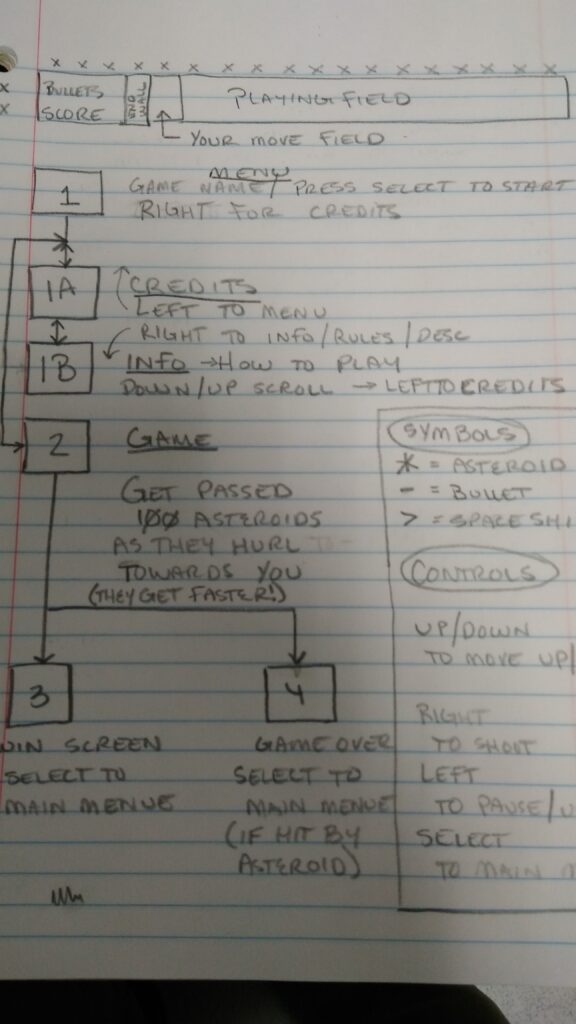 x x x x x x x x x x x x x x x x x
BULLETS
SCORE
PLAYING FIELD
YOUR MOVE FIELD
x
x
1
MENU
GAME NAME / PRESS SELECT TO START
RIGHT FOR CREDITS
1A
CREDITS
LEFT TO MENU
RIGHT TO INFO/RULES/DESC
1B
INFO → HOW TO PLAY
DOWN/UP SCROLL → LEFT TO CREDITS
2
GAME
GET PASSED
100 ASTEROIDS
AS THEY HURL
TOWARDS YOU
(THEY GET FASTER!)
3
WIN SCREEN
SELECT TO
MAIN MENUE
4
GAME OVER
SELECT TO
MAIN MENUE
(IF HIT BY
ASTEROID)
SYMBOLS
* = ASTEROID
- = BULLET
> = SPACE SHI
CONTROLS
UP/DOWN
TO MOVE UP/
RIGHT
TO SHOOT
LEFT
TO PAUSE/U
SELECT
TO MAIN